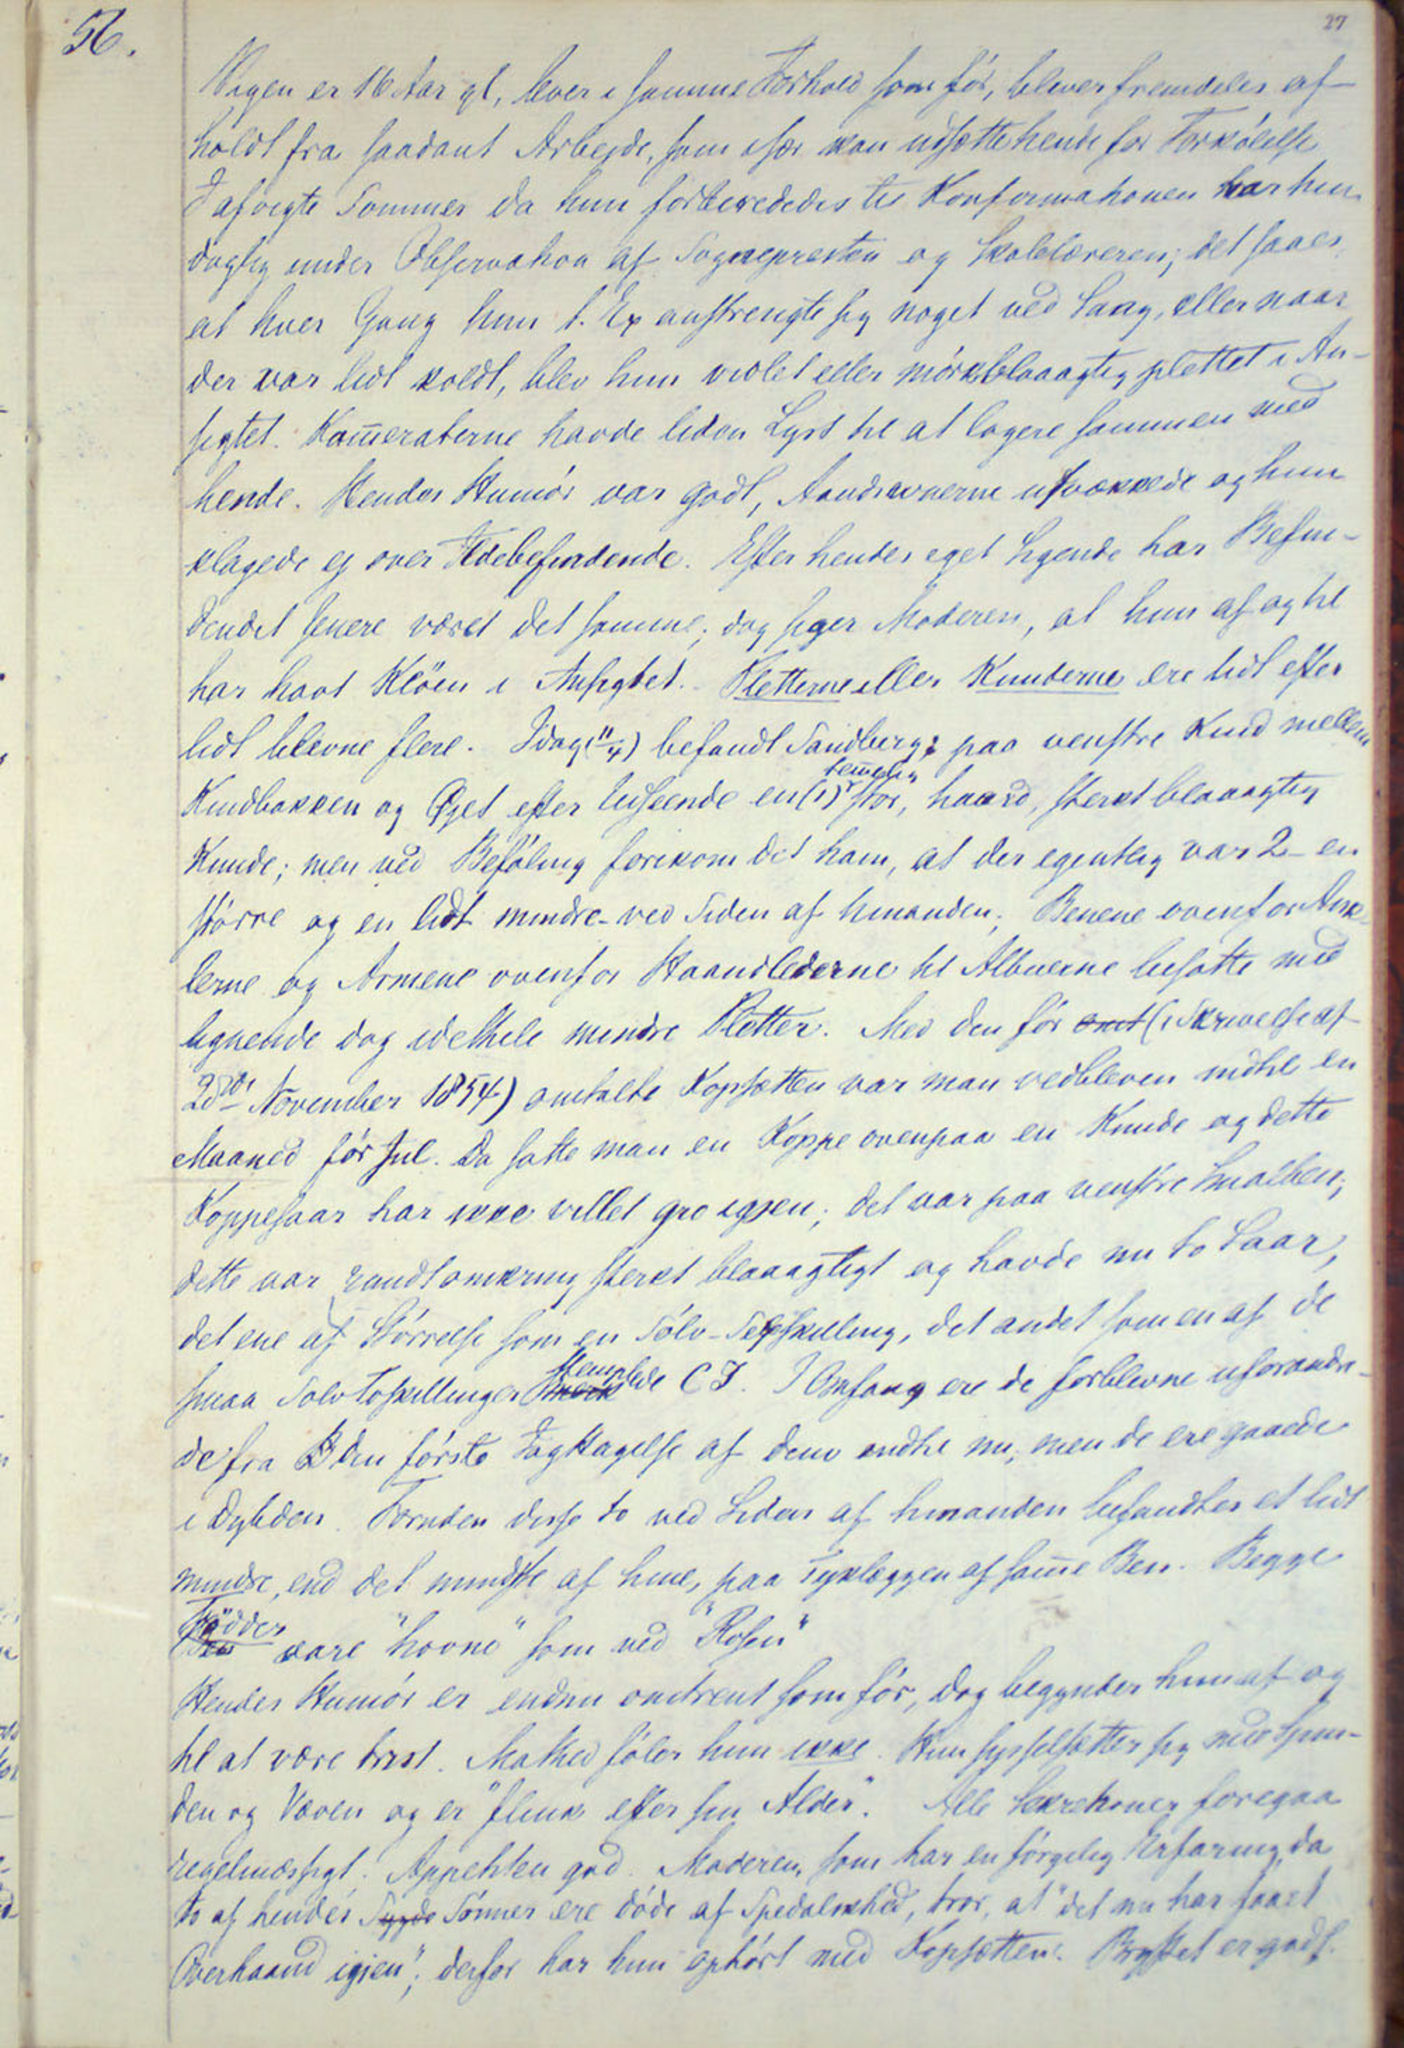 56.
27
Pigen er 16 Aar gl, lever i samme Forhold som før, bliver fremdeles af-
holdt fra saadant Arbejde, som især kan udsætte hende for Forkølelse
I afvigte Sommer da hun forberededes til Konfirmationen var hun
daglig under Observation af Sognepresten og Skolelæreren; det saaes,
at hver Gang hun t. Ex anstrengte sig noget ved Sang, eller naar
der var lidt koldt, blev hun violet eller mörkblaaagtig plettet i An-
sigtet. Kam̅eraterne havde liden Lyst til at logere sammen med
hende. Hendes Humør var godt, Aandsevnerne usvækkede og hun
klagede ej over Ildebefindende. Efter hendes eget Sigende har Befin-
dendet senere været det samme; dog siger Moderen, at hun af og til
har havt Klöen i Ansigtet. Pletterne eller Knuderne ere lidt efter
lidt blevne flere. Idag (11/4) befandt Sandberg: paa venstre Kind mellem
Kindbakken og Øjet efter Udseende en (1) tem̅elig stor, haard, sterkt blaaagtig
Knude; men ved Beføling forekom det ham, at der egentlig var 2 - en
større og en lidt mindre - ved Siden af hinanden; Benene ovenfor Ank-
lerne og Armene ovenfor Haandlederne til Albuerne besatte med
lignende dog idethele mindre Pletter. Med den før omt (i Skrivelse af
28de November 1854) omtalte Kopsætten var man vedbleven indtil en
Maaned før Jul. Da satte man en Koppe ovenpaa en Knude og dette
Koppesaar har ikke villet gro igjen; det var paa venstre Smalben;
dette var rundtomkring sterkt blaaagtigt og havde nu to Saar,
det ene af Størrelse som en Sølv-Sexskilling, det andet som en af de
smaa Sølvtoskillinger stemplede C I. I Omfang ere de forblevne uforandre-
de fra den første Iagttagelse af dem indtil nu; men de ere gaaede
i Dybden. Foruden disse to ved Siden af hinanden befandtes et lidt
mindre, end det mindste af hine, paa Tyklæggen af sam̅e Ben. Begge
Ben Fødder vare "hovne" som ved "Rosen"
Hendes Humør er endnu omtrent som før, dog begynder hun af og
til at være trist. Mathed føler hun ikke. Hun sysselsætter sig med Spin-
den og Væven og er "flink efter sin Alder". Alle Sekretioner foregaa
regelmæssigt. Appetiten god. Moderen, som har en sørgelig Erfaring, da
to af hendes Sygde Sønner ere døde af Spedalskhed, tror, at "det nu har faaet
Overhaand igjen"; derfor har hun ophørt med Kopsætten. Brystet er godt.